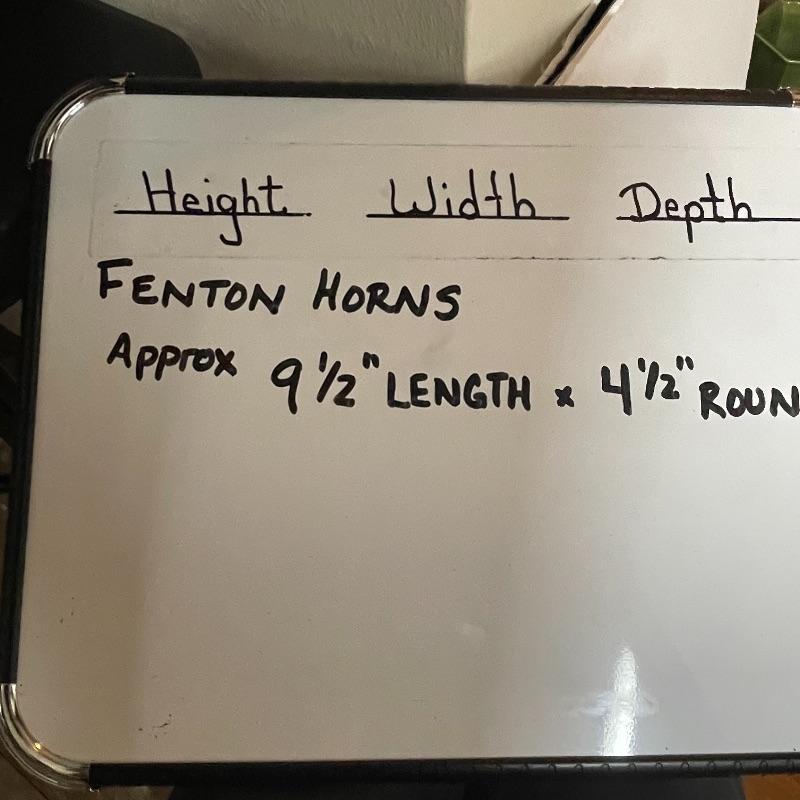 Height Width Depth
FENTON HORNS
Approx 9 1/2" LENGTH x 4 1/2" ROUN